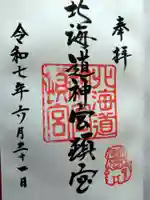 奉拝
北海道神宮頓宮
令和七年六月二十一日
北海道
頓宮